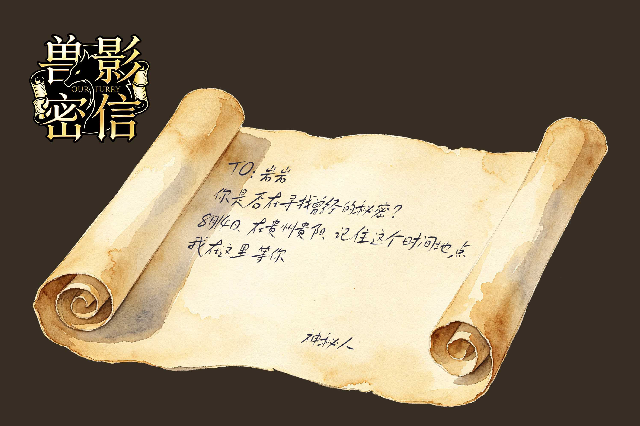 兽影
OUR FURRY
密信
TO: 岩岩
你是否在寻找兽径的秘密?
8月4日 在贵州贵阳 记住这个时间地点
我在这里等你
神秘人